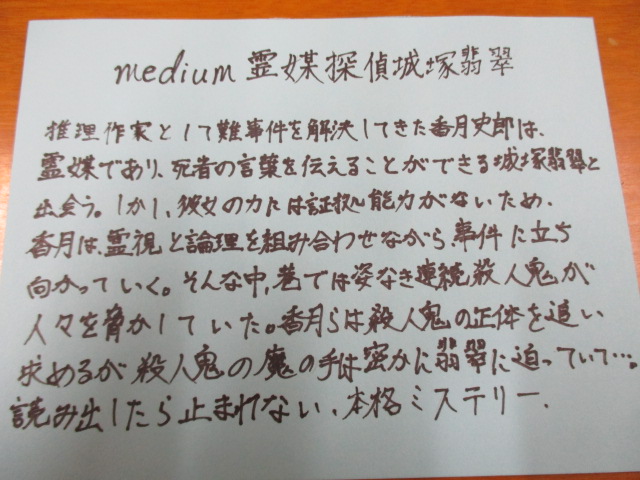 medium 霊媒探偵城塚翡翠
推理作家として難事件を解決してきた香月史郎は、
霊媒であり、死者の言葉を伝えることができる城塚翡翠と
出会う。しかし、彼女の力には証拠能力がないため、
香月は、霊視と論理を組み合わせながら事件に立ち
向かっていく。そんな中、巷では姿なき連続殺人鬼が
人々を脅かしていた。香月らは殺人鬼の正体を追い
求めるが殺人鬼の魔の手は密かに翡翠に迫っていて…。
読み出したら止まれない、本格ミステリー。